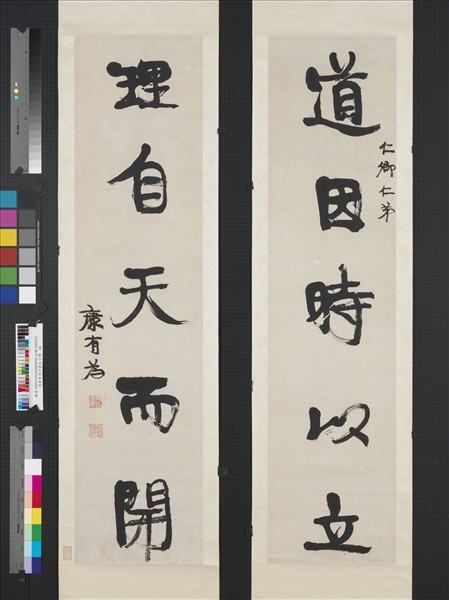 道因時以立
仁卿仁弟
理自天而開
康有為